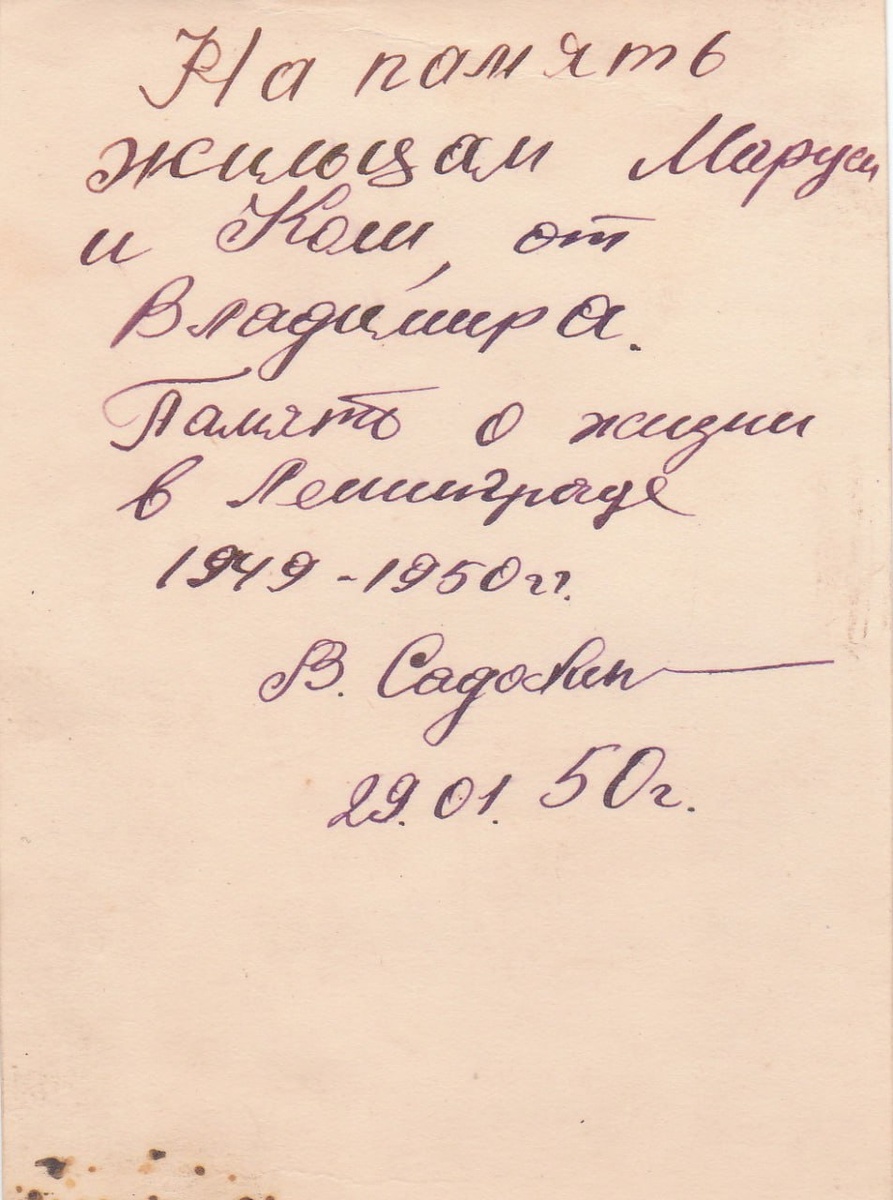 На память
жильцам Маруси
и Коли, от
Владимира.
Память о жизни
в Ленинграде
1949-1950гг.
В. Садовин
29.01.50г.